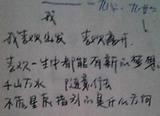 我
我喜欢出发 喜欢离开
喜欢一生中都能有新的梦想
千山万水 随意行去
不管星辰指引的是什么方向